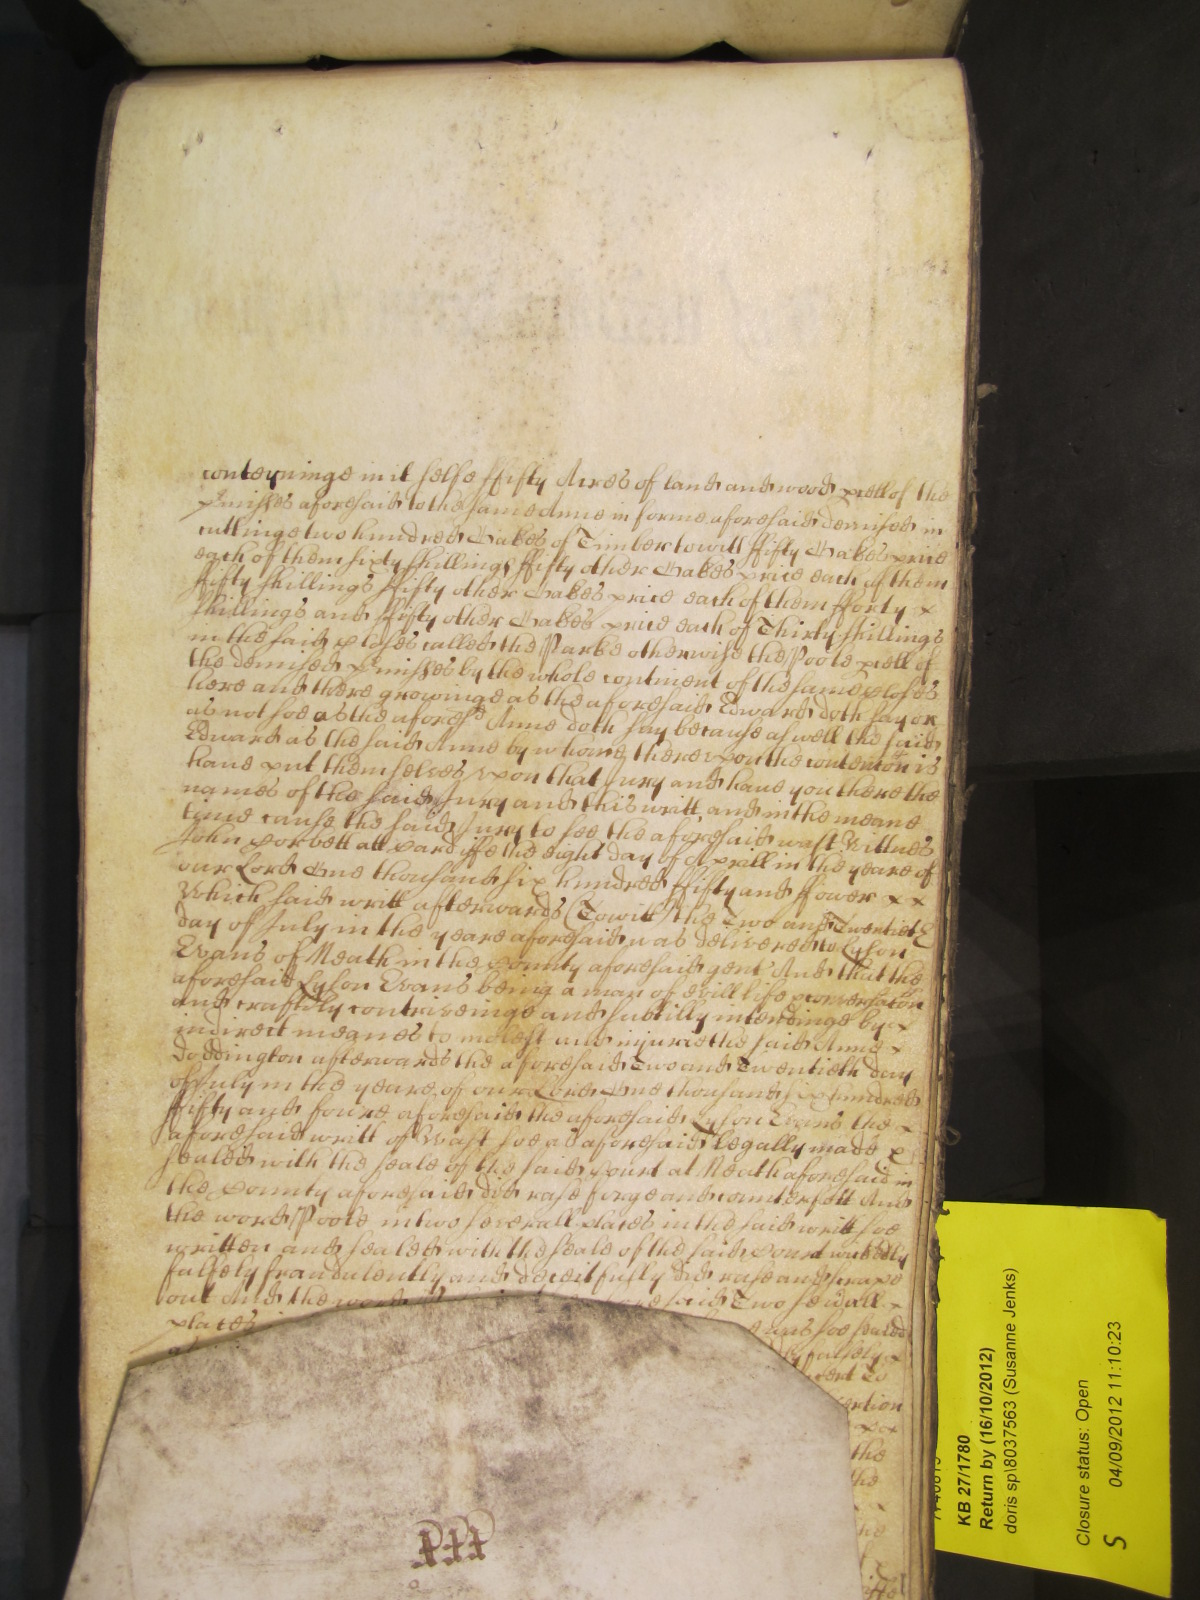 conteyninge in it selfe ffifty Acres of land and wood p̱cell of the
p̱misses aforesaid to the same Anne in forme aforesaid demised in
cuttinge two hundred Oakes of Timber towitt ffifty Oakes price
each of them sixty shillings ffifty other Oakes price each of them
ffifty shillings ffifty other Oakes price each of them fforty x
shillings and ffifty other Oakes price each of Thirty shillings
in the said closes called the Parke otherwise the Poole p̱cell of
the demised p̱misses by the whole contment of the same closes
here and there growinge as the aforesaid Edward doth say or
as not soe as the aforesd Anne doth say because aswell the said
Edward as the said Anne by whome thereupon the contencon is
have put themselves upon that Jury and have you there the
names of the said Jury and this writt and in the meane
tyme cause the said Jury to see the aforesaid wast Wittnes
John Corbett att Cardiffe the eight day of Aprill in the yeare of
our Lord One thousand six hundred ffifty and ffower x x
Which said writt afterwards (Towitt) the Two and Twentieth
day of July in the yeare aforesaid was delivered to Lyson
Evans of Neath in the County aforesaid gent And that the
aforesaid Lyson Evans being a man of evill life conversacon
and craftily contriveinge and subtilly intendinge by x
indirect meanes to molest and injurie the said Anne x
Doddington afterwards the aforesaid Two and Twentieth day
of July in the yeare of our Lord One thousand six hundred
ffifty and foure aforesaid the aforesaid Lyson Evans the x
aforesaid writt of Wast soe as aforesaid legally made
sealed with the seale of the said Court at Neath aforesaid in
the County aforesaid did rase forge and counterfett And
the word Poole in two severall places in the said writt soe
written and sealed with the seale of the said Court
falsely fraudulently and deceitfully did rase and scrape
out And the word said Two sevall x
places and soe sealed
falsely x

x x
the
the
x x
PPP
KB 27/1780
Return by (16/10/2012)
doris sp\8037563 (Susanne Jenks)
Closure status: Open
S 04/09/2012 11:10:23